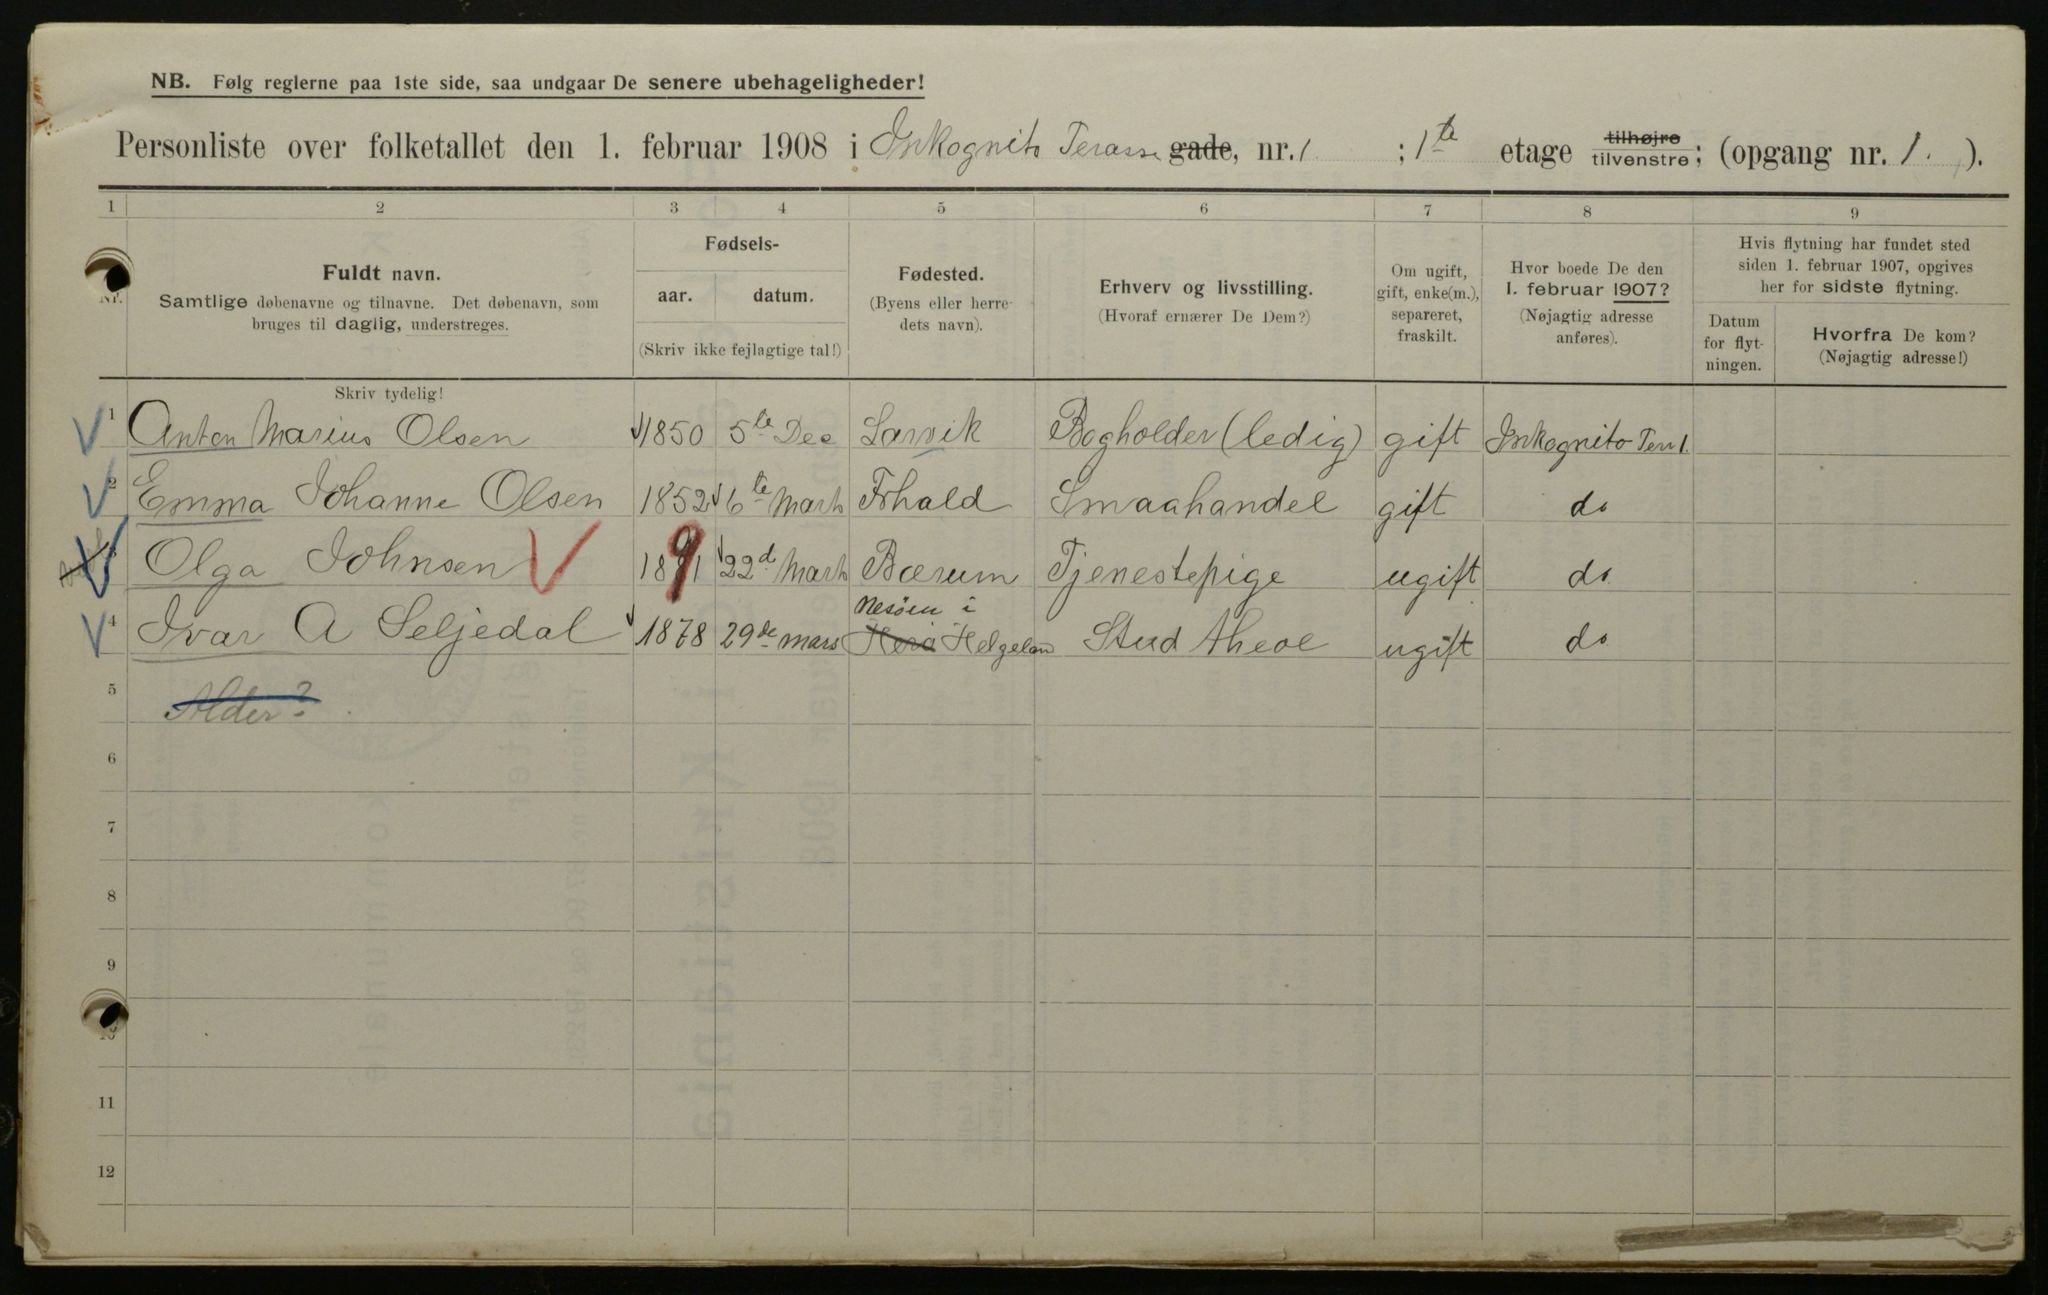 NB. Følg reglerne paa 1ste side, saa undgaar De senere ubehageligheder!
Personliste over folketallet den 1. februar 1908 i Inkognito Terasse gade, nr. 1 ; 1te etage tilhøjre tilvenstre; (opgang nr. 1. ).
1 2 3 4 5 6 7 8 9
Nr.
Fuldt navn.
Samtlige døbenavne og tilnavne. Det døbenavn, som
bruges til daglig, understreges.
Fødsels-
aar. datum.
(Skriv ikke fejlagtige tal!)
Fødested.
(Byens eller herre-
dets navn).
Erhverv og livsstilling.
(Hvoraf ernærer De Dem?)
Om ugift,
gift, enke(m.),
separeret,
fraskilt.
Hvor boede De den
1. februar 1907?
(Nøjagtig adresse
anføres).
Hvis flytning har fundet sted
siden 1. februar 1907, opgives
her for sidste flytning.
Datum
for flyt-
ningen.
Hvorfra De kom?
(Nøjagtig adresse!)
Skriv tydelig!
1 Anton Marius Olsen 1850 5te Dec Larvik Bogholder (ledig) gift Inkognito Terr 1.
2 Emma Johanne Olsen 1852 6te Marts Frhald Smaahandel gift do
3 Olga Johnsen 1891 22d Marts Bærum Tjenestepige ugift do
Nesöen i
4 Ivar A Seljedal 1878 29de mars Herø Helgeland Stud theol ugift do
5
Alder?
6
7
8
9
10
11
12